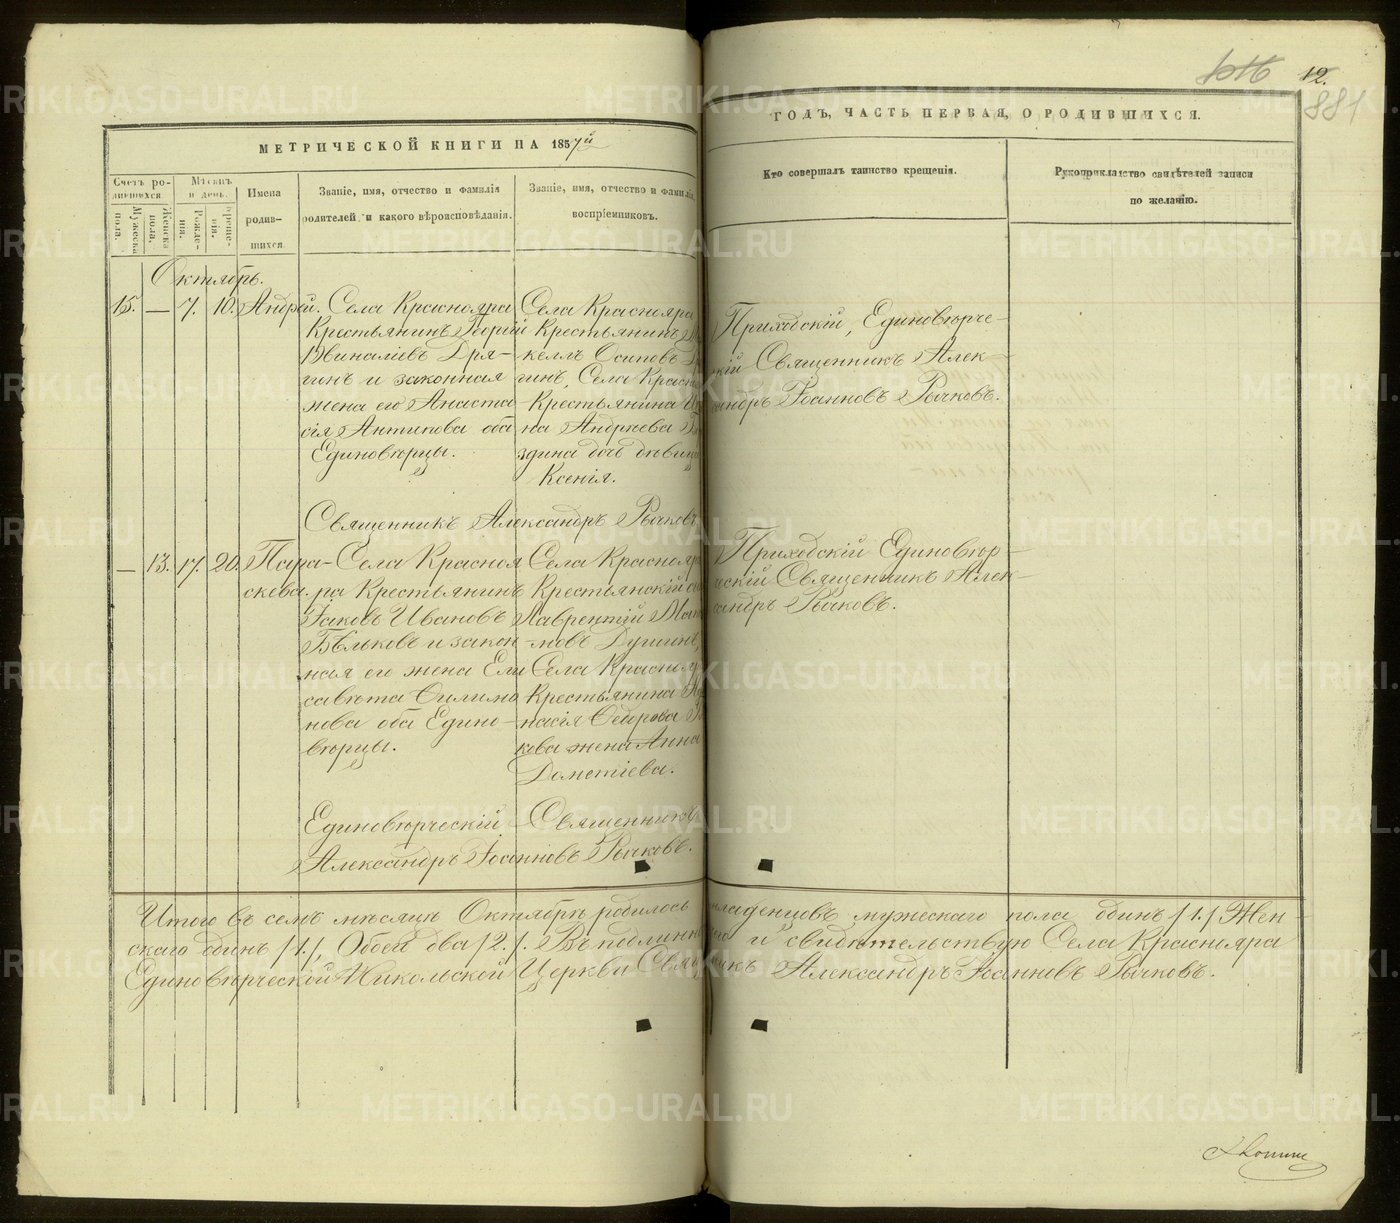 МЕТРИЧЕСКОЙ КНИГИ НА 1857й
ГОДЪ, ЧАСТЬ ПЕРВАЯ, О РОДИВШИХСЯ.
12.
881
Счетъ ро-
дившихся
Мужеска
пола.
Женска
пола.
Мѣсяцъ
и день.
Рожде-
нія.
Креще-
нія.
Имена
родив-
шихся
Званіе, имя, отчество и фамилія
родителей, и какого вѣроисповѣданія.
Званіе, имя, отчество и фамилія,
воспріемниковъ.
Кто совершалъ таинство крещенія.
Рукоприкладство свидѣтелей записи
по желанію.
Октябрь.
15. — 7. 10. Андрей.
Села Краснояра
Крестьянинъ Георгій
Дря-
гинъ и законная
жена его Анаста
сія Антипова оба
Единовѣрцы.
Села Краснояра
Крестьянинъ
келъ Осиповъ
гинъ, Села Красно
Крестьянина
на Андреева
здина дочь дѣвица
Ксенія.
Приходскій, Единовѣрче-
скій Священникъ Алек-
сандръ Іоанновъ Рычковъ.
Священникъ Александръ Рычковъ
— 13. 17. 20. Пара-
скева.
Села Красноя
ра Крестьянинъ
Іаковъ Ивановъ
Бѣльковъ и закон-
ная его жена Ели
савета Филимо
нова оба Едино-
вѣрцы.
Села Краснояр
Крестьянскій
Лаврентій
новъ Душинъ,
Села Краснояр
Крестьянина
насія Федорова
кова жена Анна
Дометіева.
Приходскій Единовѣр-
ческій Священникъ Алек-
сандръ Рычковъ.
Единовѣрческій Священникъ
Александръ Іоанновъ Рычковъ.
Итого въ семъ мѣсяцѣ Октябрѣ родилось младенцовъ мужескаго пола одинъ /1./ Жен-
скаго одинъ /1./, Обоего два /2./. Въ подлинно и свидѣтельствую Села Краснояра
Единовѣрческой Никольской Церкви Священникъ Александръ Іоанновъ Рычковъ.
METRIKI.GASO-URAL.RU